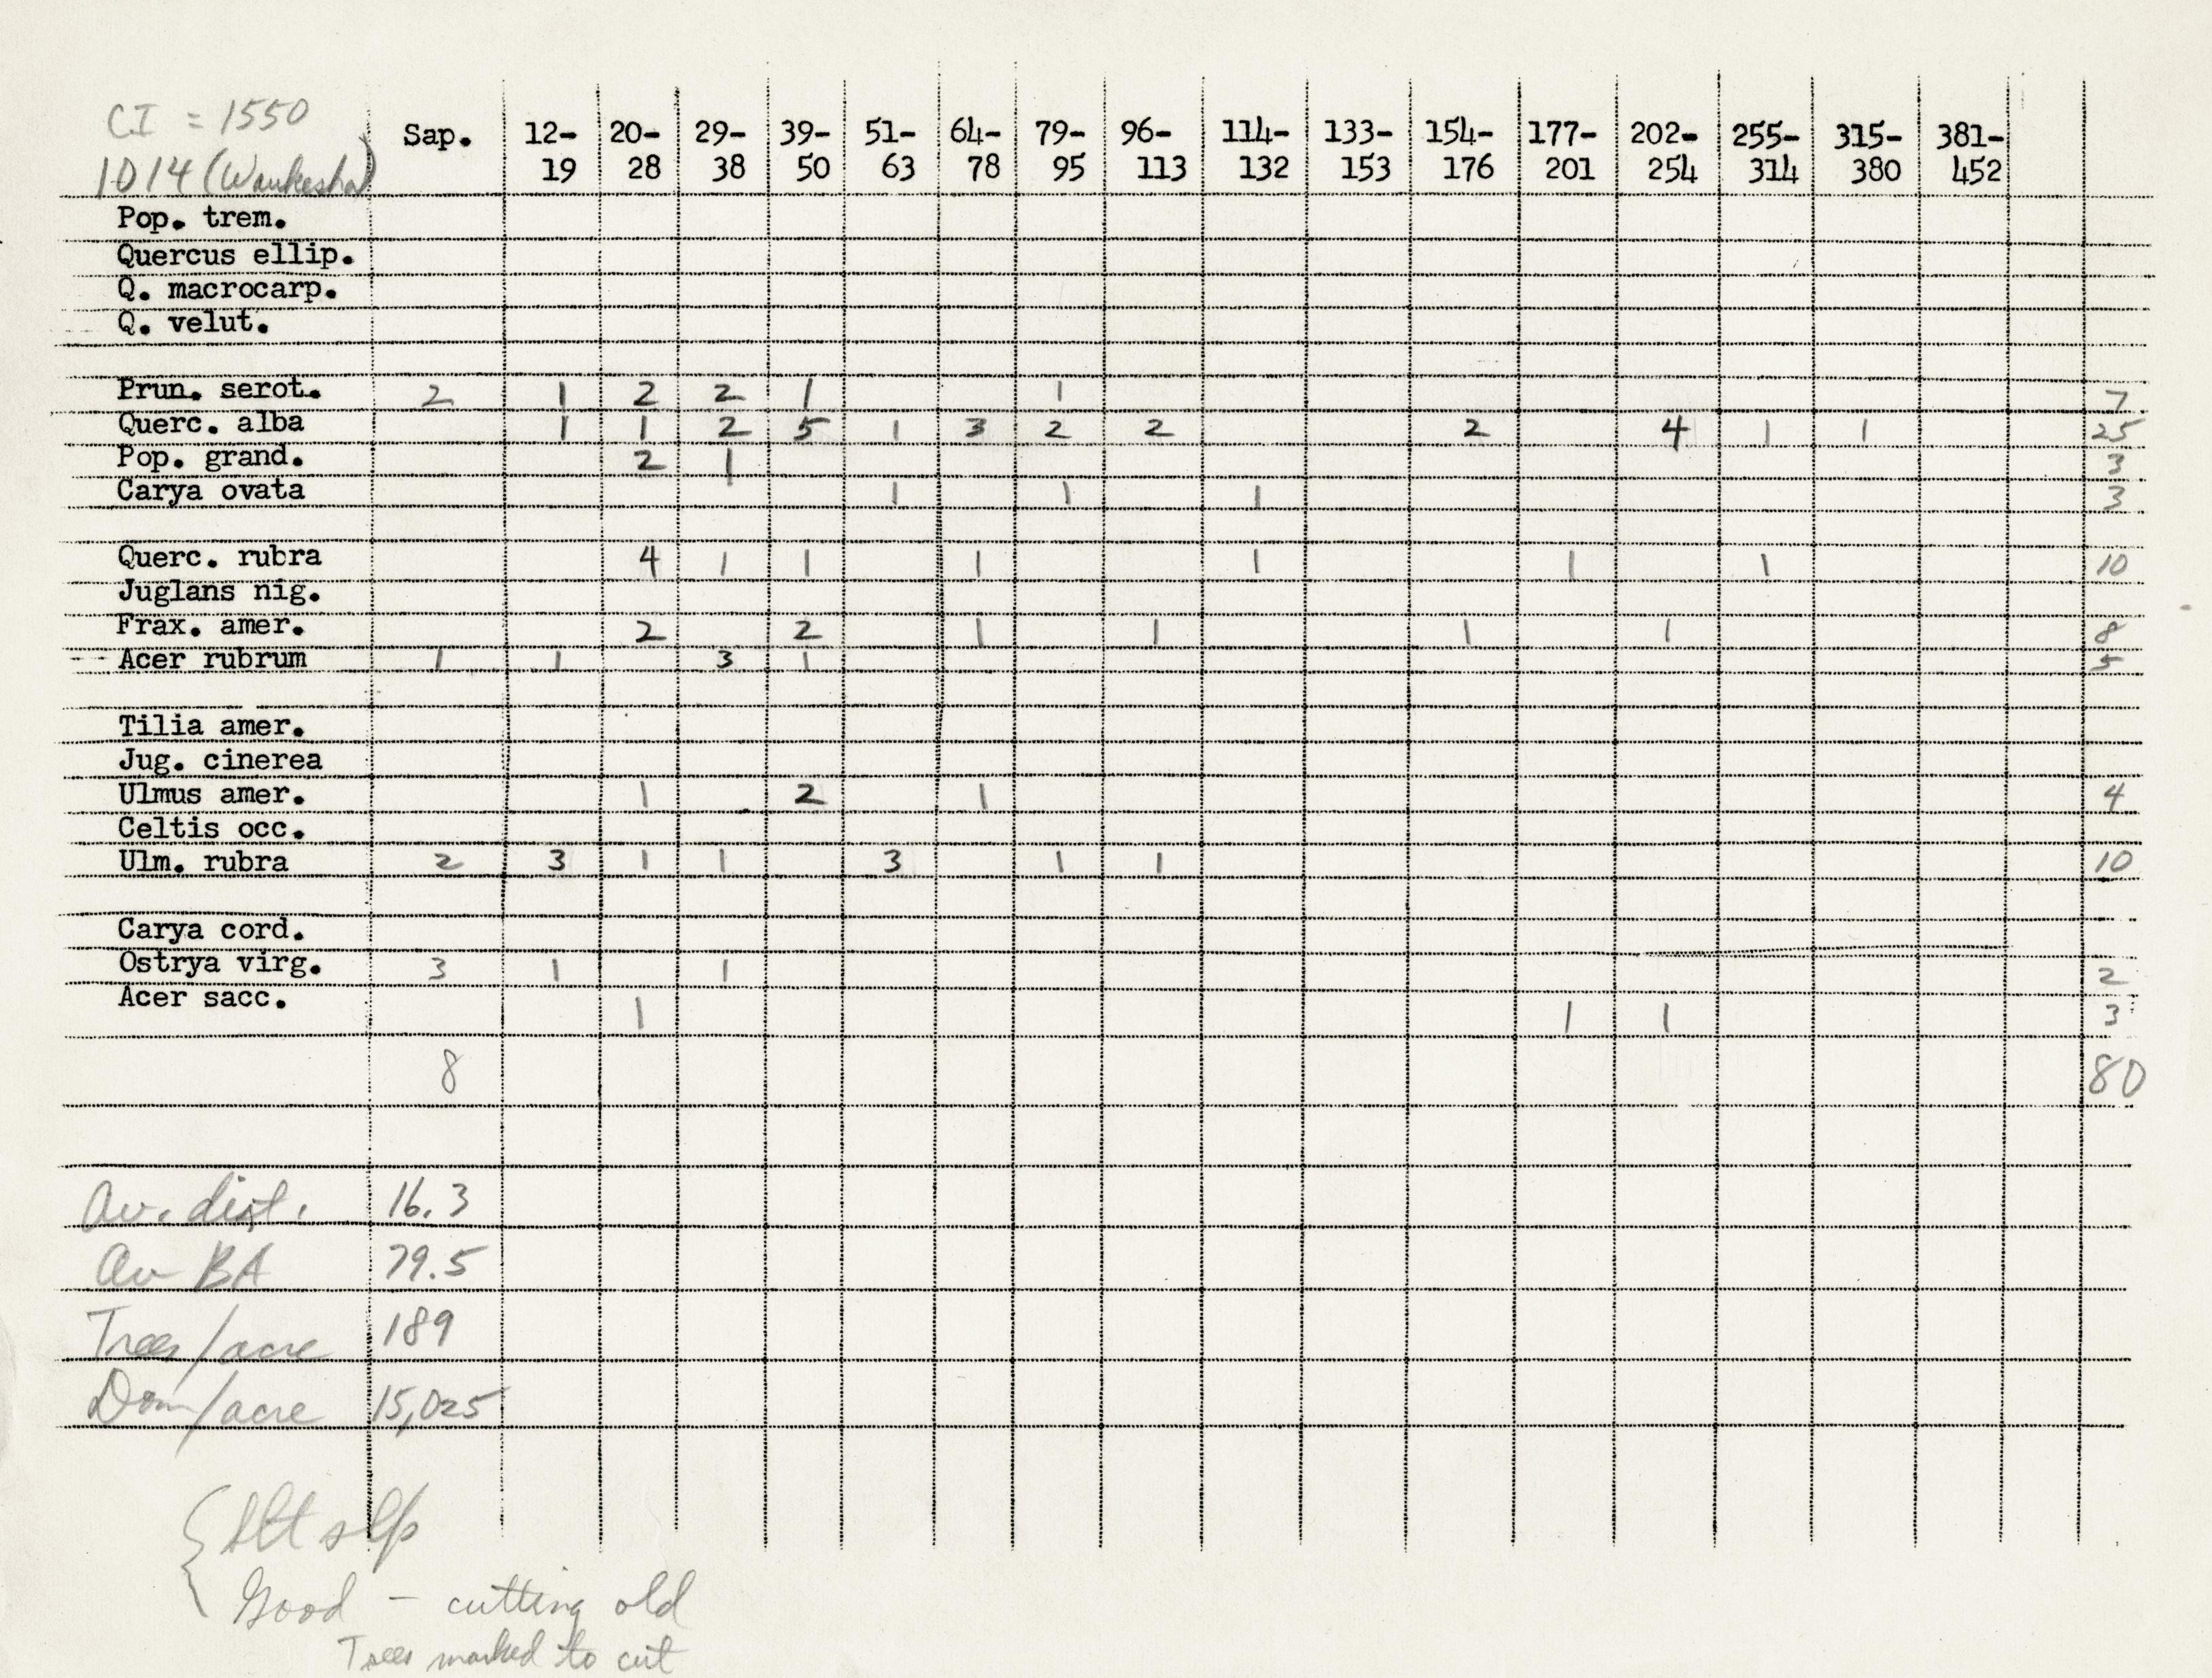 CI = 1550
1014 (Waukesha)
Sap. 12- 20- 29- 39- 51- 64- 79- 96- 114- 133- 154- 177- 202- 255- 315- 381-
19 28 38 50 63 78 95 113 132 153 176 201 254 314 380 452
Pop. trem.
Quercus ellip.
Q. macrocarp.
Q. velut.
Prun. serot. 2 1 2 2 1 1 7
Querc. alba 1 1 2 5 1 3 2 2 2 4 1 1 25
Pop. grand. 2 1 3
Carya ovata 1 1 1 3
Querc. rubra 4 1 1 1 1 1 1 10
Juglans nig.
Frax. amer. 2 2 1 1 1 1 8
Acer rubrum 1 1 3 1 5
Tilia amer.
Jug. cinerea
Ulmus amer. 1 2 1 4
Celtis occ.
Ulm. rubra 2 3 1 1 3 1 1 10
Carya cord.
Ostrya virg. 3 1 1 2
Acer sacc. 1 1 1 3
8 80
Av. dist. 16.3
Av BA 79.5
Trees/acre 189
Dom/acre 15,025
Slt slp
Good - cutting old
Trees marked to cut